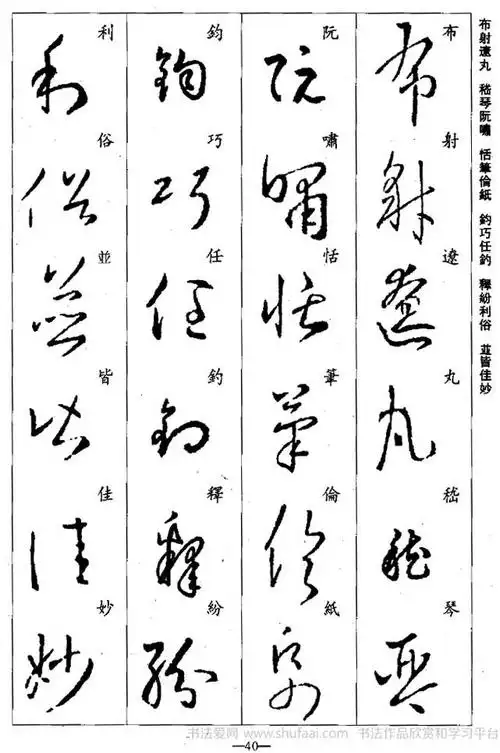 布射遼丸 嵇琴阮嘯 恬筆倫紙 鈞巧任釣 釋紛利俗 並皆佳妙
布射遼丸嵇琴
阮嘯恬筆倫紙
鈞巧任釣釋紛
利俗並皆佳妙
书法爱网 www.shufaai.com 书法作品欣赏和学习平台
—40—